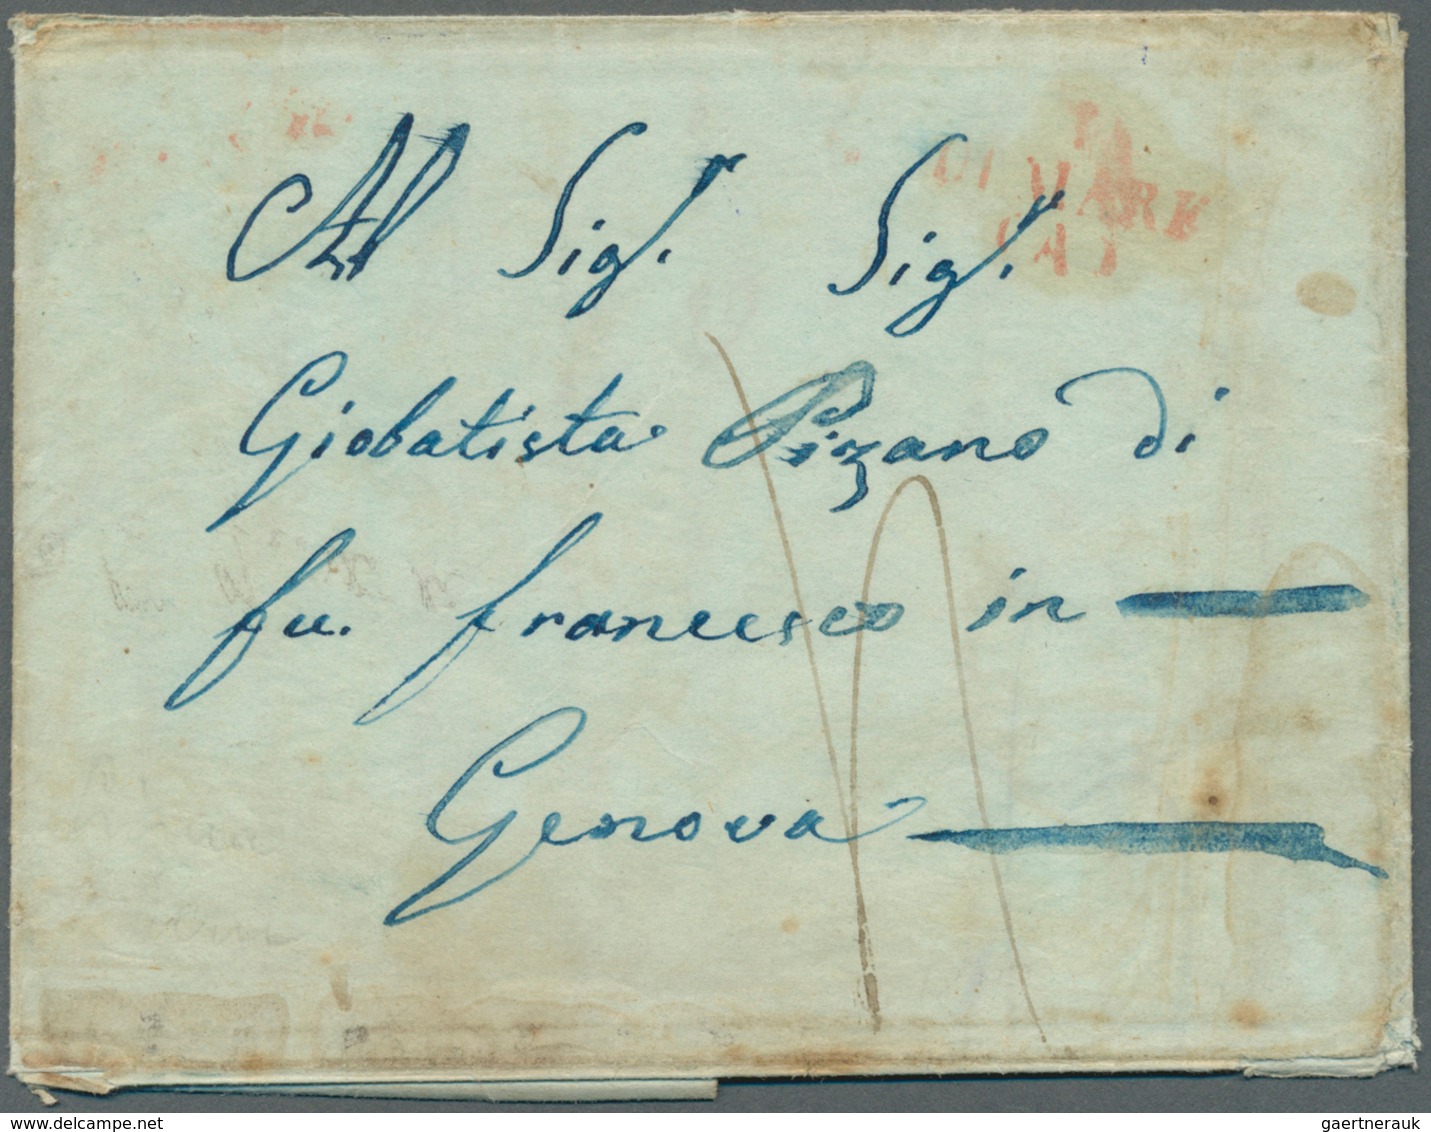 Al Sig.r Sig.r
DI MARE
Giobatista Pizano di
fu. francesco in
Genova
www.delcampe.net
gaertnerauk